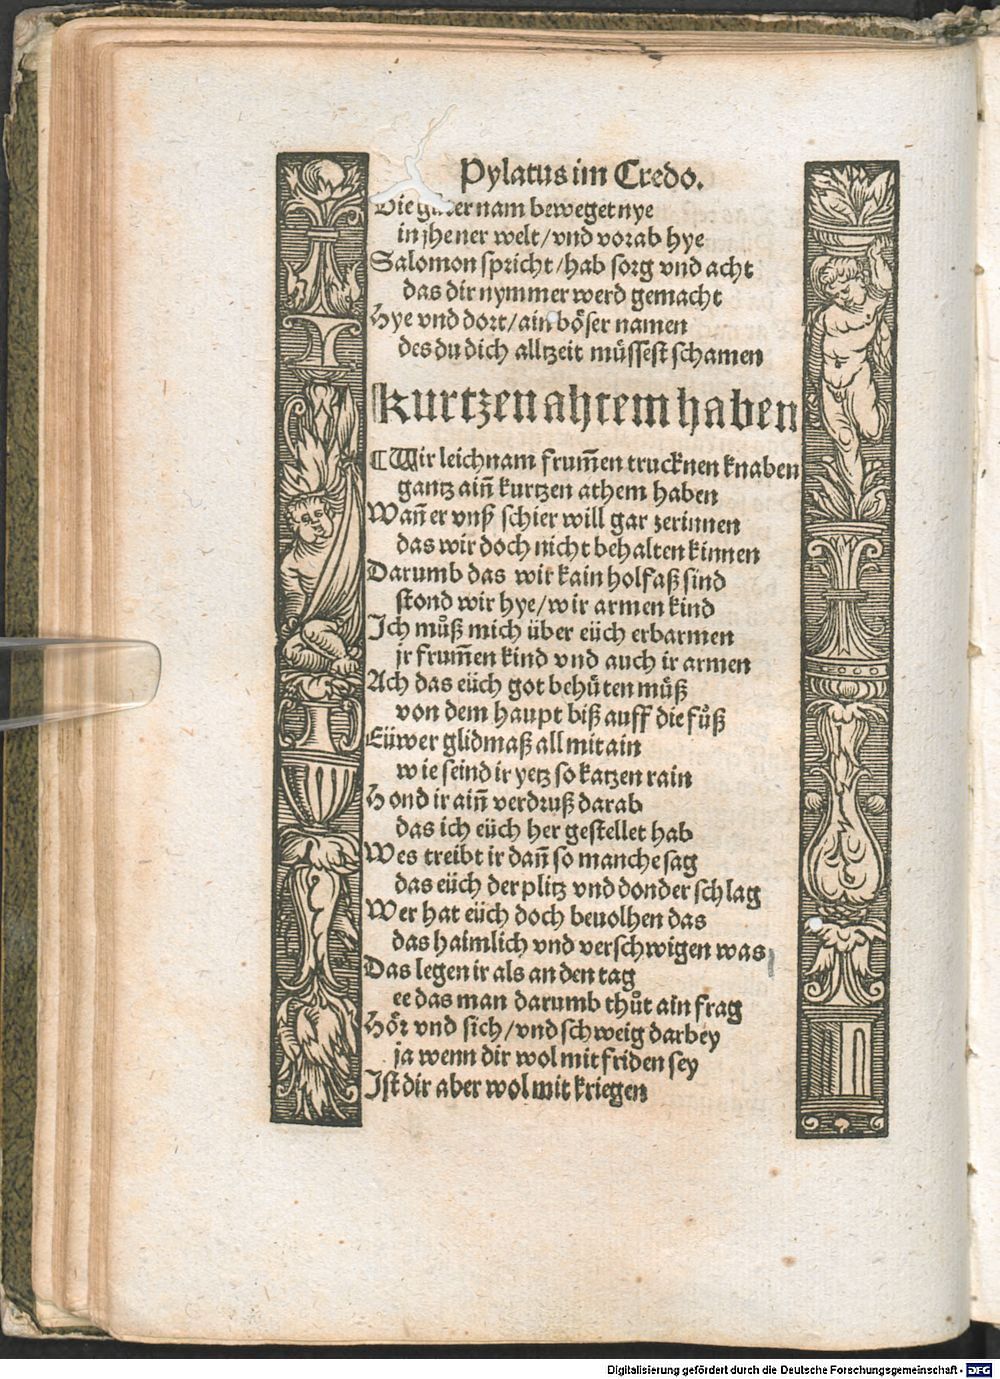 Pylatus im Credo.
Die guter nam beweget nye
in jhener welt/vnd vorab hye
Salomon spricht/hab sorg vnd acht
das dir nymmer werd gemacht
Hye vnd dort/ain böser namen
des du dich alltzeit müssest schamen
Kurtzen ahtem haben
¶ Wir leichnam frum̃en trucknen knaben
gantz ain̄ kurtzen athem haben
Wan̄ er vnß schier will gar zerinnen
das wir doch nicht behalten kinnen
Darumb das wir kain holfaß sind
stond wir hye/wir armen kind
Ich můß mich über eüch erbarmen
jr frum̃en kind vnd auch ir armen
Ach das eüch got behüten můß
von dem haupt biß auff die fůß
Eüwer glidmaß all mit ain
wie seind ir yetz so katzen rain
Hond ir ain̄ verdruß darab
das ich eüch her gestellet hab
Wes treibt ir dan̄ so manche sag
das eüch der plitz vnd donder schlag
Wer hat eüch doch beuolhen das
das haimlich vnd verschwigen was
Das legen ir als an den tag
ee das man darumb thůt ain frag
Hör vnd sich/vnd schweig darbey
ja wenn dir wol mit friden sey
Ist dir aber wol mit kriegen
Digitalisierung gefördert durch die Deutsche Forschungsgemeinschaft - DFG